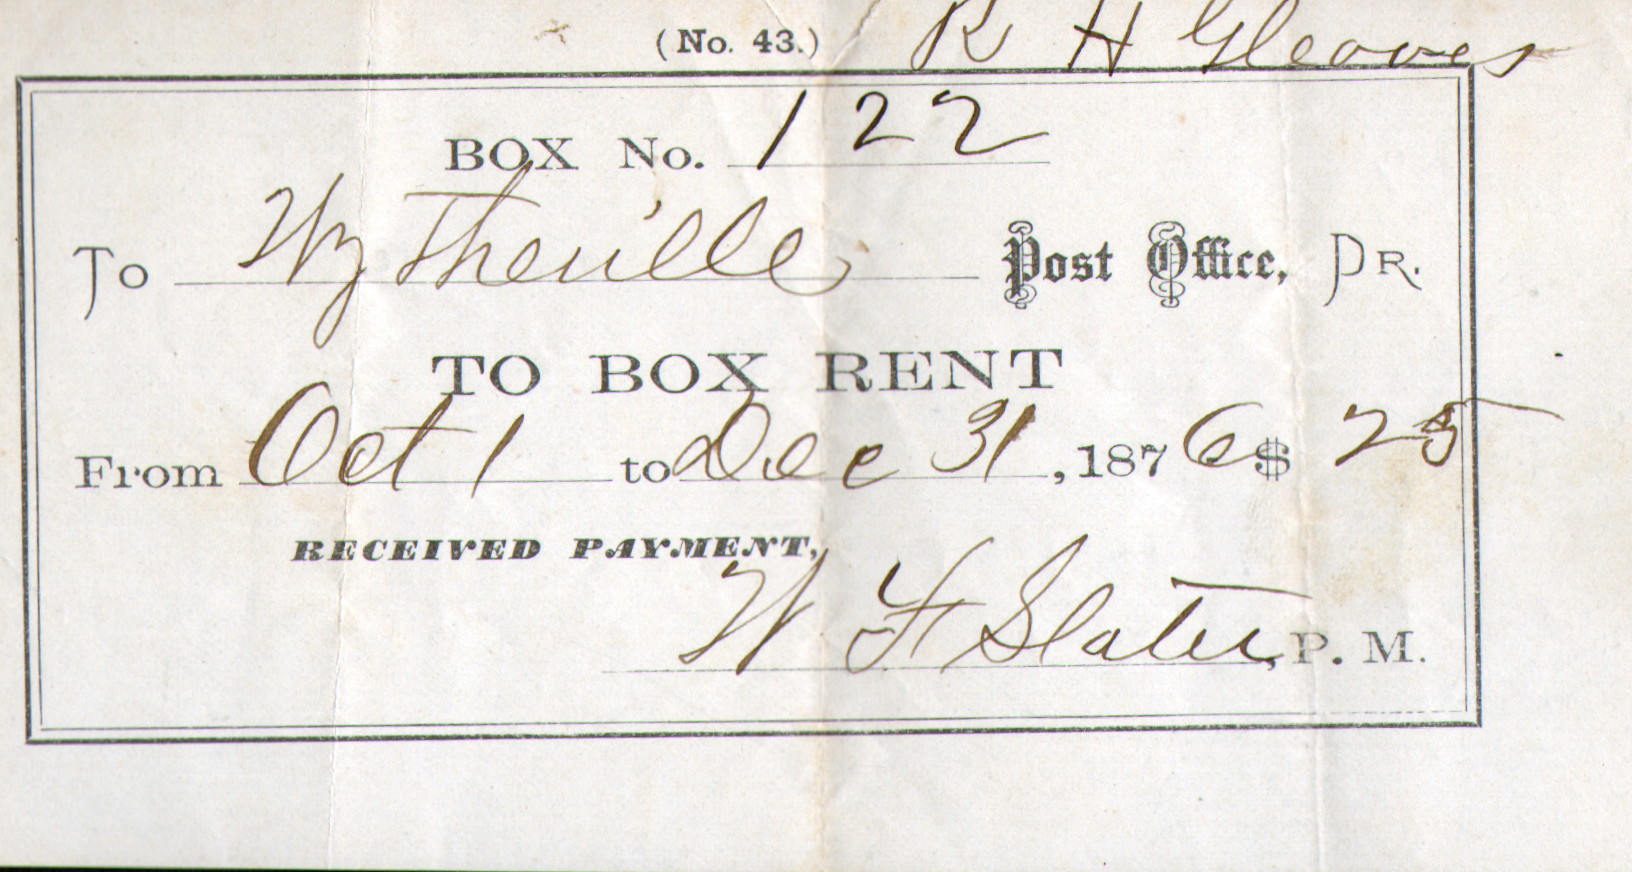 (No. 43.) R H Gleaves
BOX No. 122
To Wytheville Post Office, DR.
TO BOX RENT
From Oct 1 to Dec 31, 1876 $ 25
RECEIVED PAYMENT,
W H Slater, P. M.